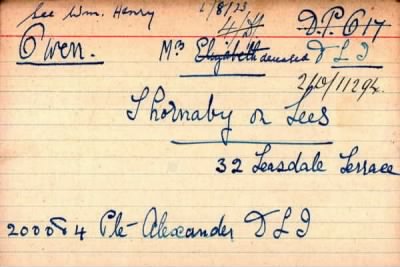 See Wm. Henry 2/8/23 D.P. 617
4/D.
Owen. Mrs Elizabeth deceased D L I
2/D/11294.
Thornaby on Tees
32 Teasdale Terrace
200084 Pte Alexander D L I